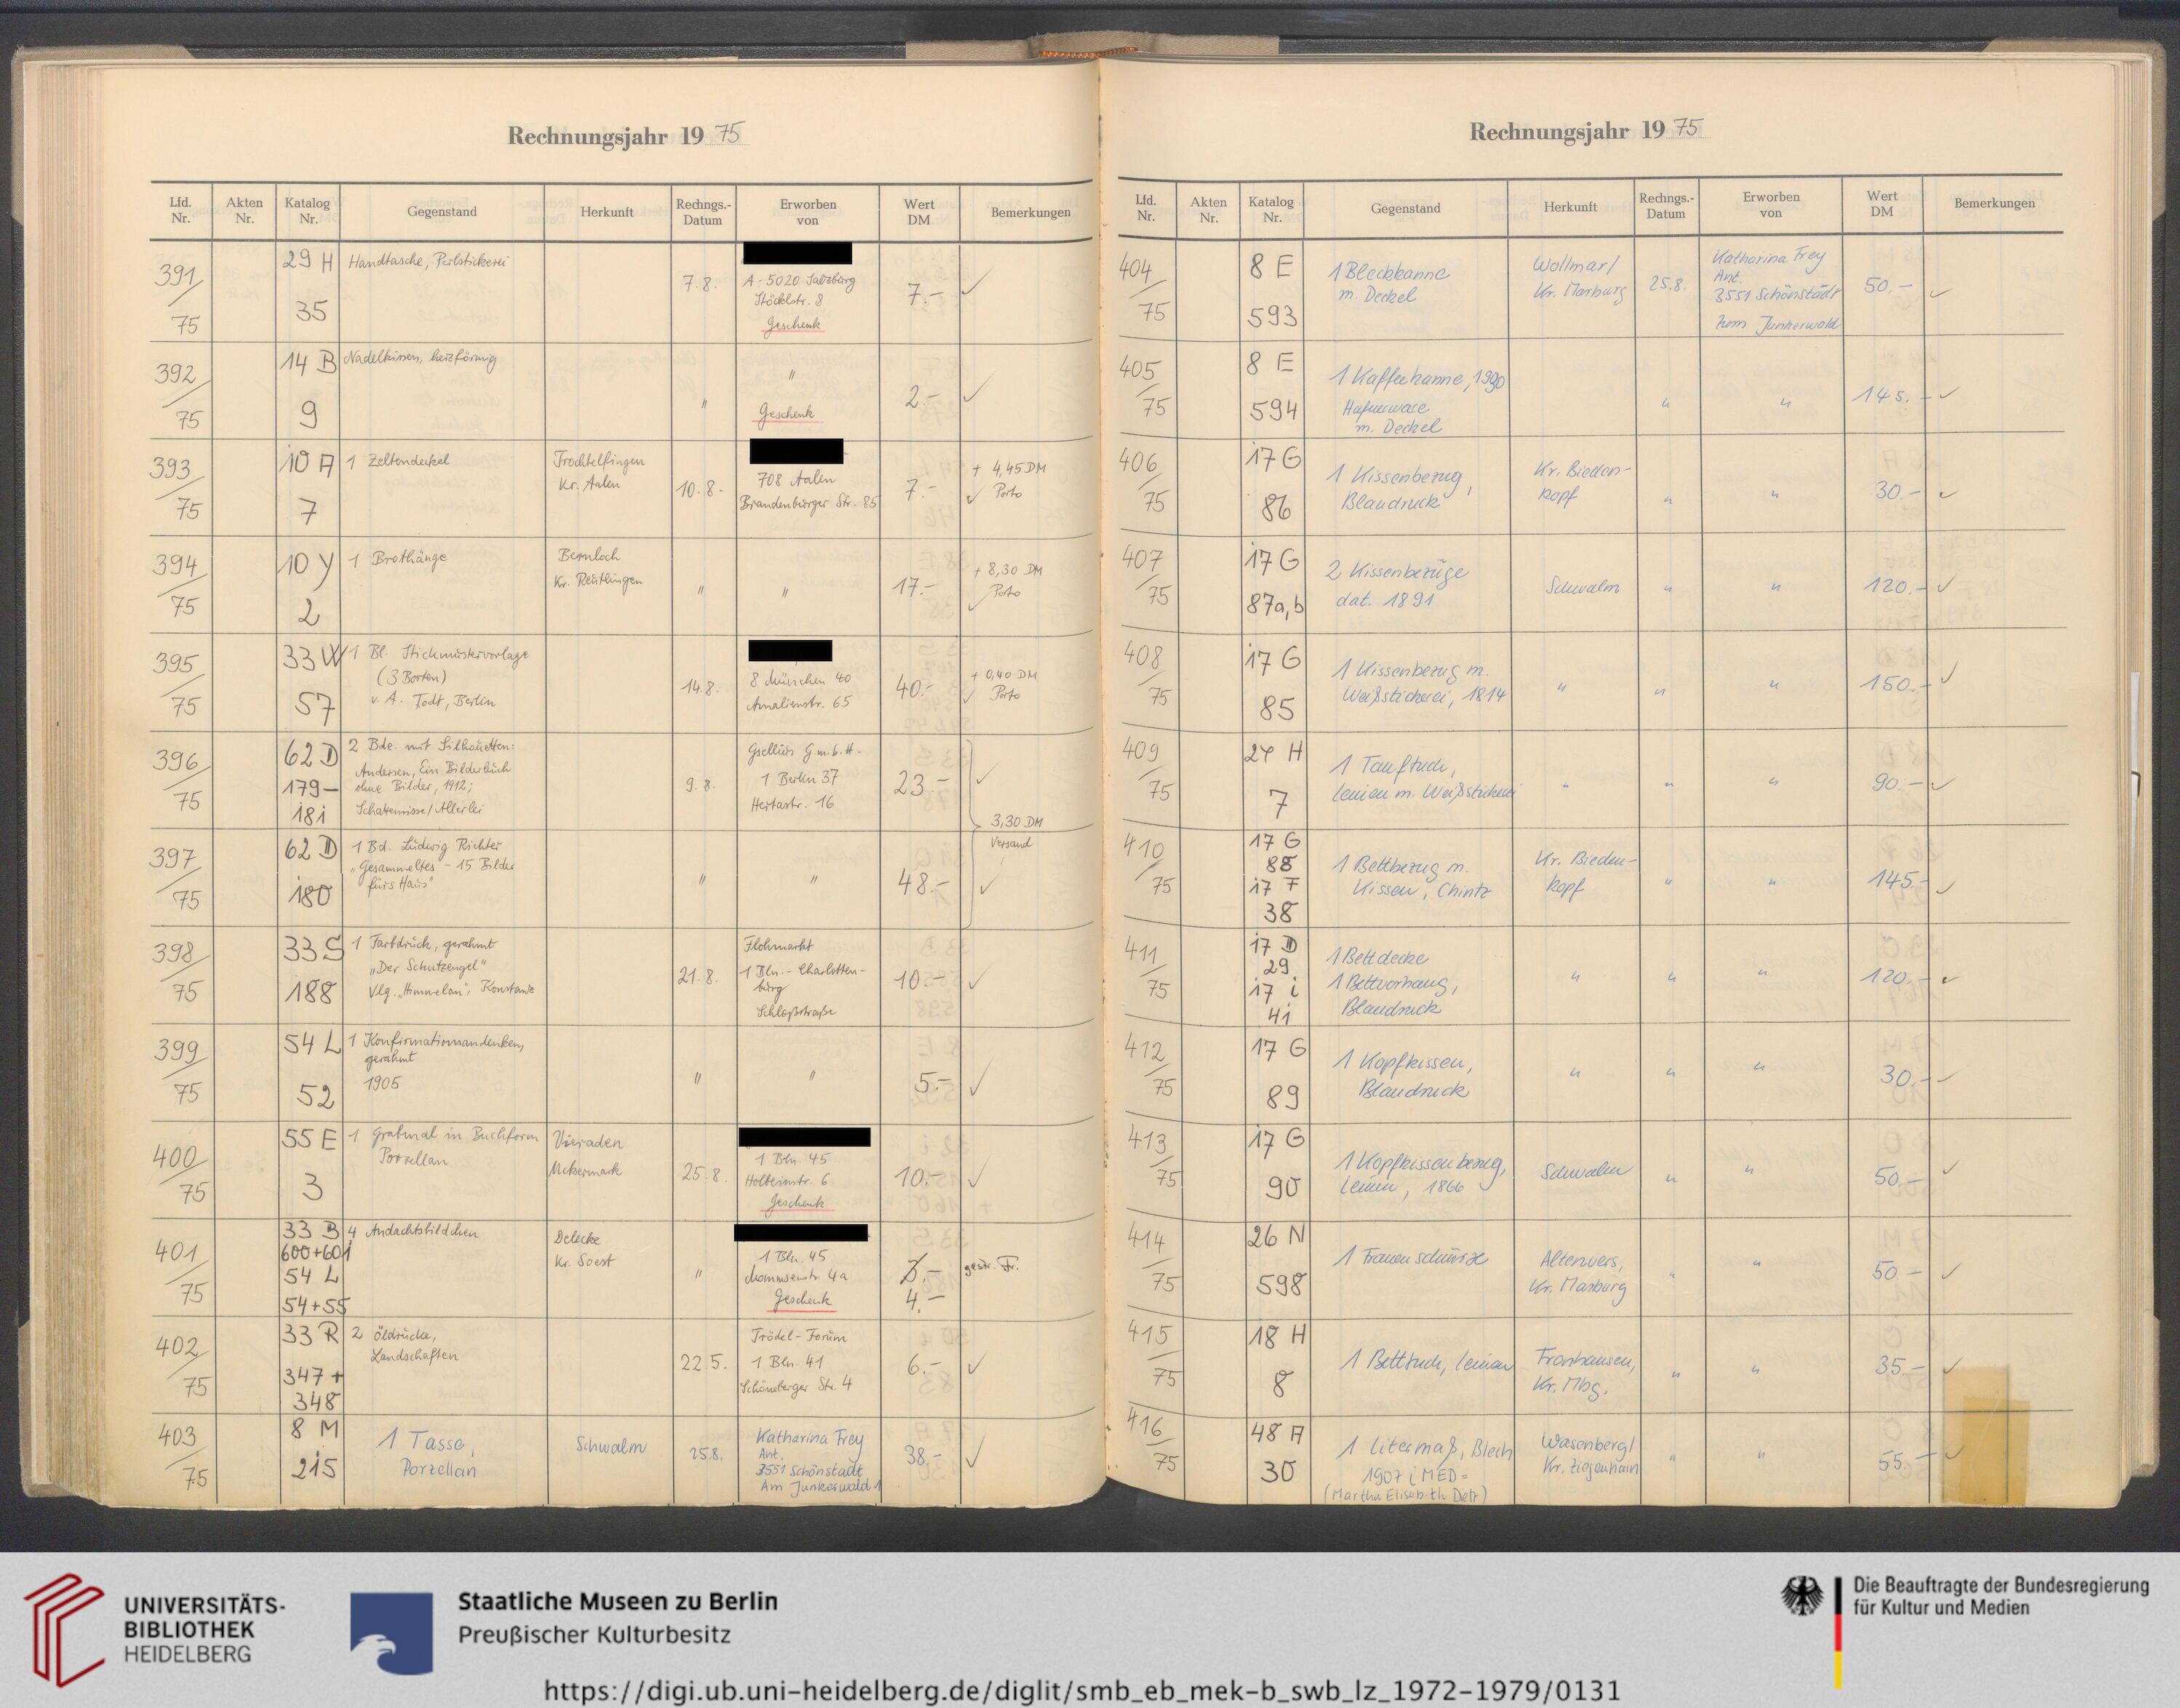 Rechnungsjahr 19 75
Lfd. Nr. Akten Nr. Katalog Nr. Gegenstand Herkunft Rechngs.-Datum Erworben von Wert DM Bemerkungen
391/75 29 H 35 Handtasche, Perlstickerei 7.8. A-5020 Salzburg
Stöcklstr. 8
Geschenk 7.- ✓
392/75 14 B 9 Nadelkissen, herzförmig " "
Geschenk 2.- ✓
393/75 10 A 7 1 Zeltendeckel Trochtelfingen
Kr. Aalen 10.8. 708 Aalen
Brandenburger Str. 85 7.- + 4,45 DM
✓ Porto
394/75 10 Y 2 1 Brothänge Bernloch
Kr. Reutlingen " " 17.- + 8,30 DM
✓ Porto
395/75 33 W 57 1 Bl. Stickmustervorlage
(3 Borten)
v. A. Todt, Berlin 14.8. 8 München 40
Amalienstr. 65 40.- + 0,40 DM
✓ Porto
396/75 62 D 179-181 2 Bde. mit Silhouetten:
Andersen, Ein Bilderbuch
ohne Bilder, 1912;
Schattenrisse/Allerlei 9.8. Gsellius G.m.b.H.
1 Berlin 37
Hertastr. 16 23.- ✓
3,30 DM
Versand
397/75 62 D 180 1 Bd. Ludwig Richter
„Gesammeltes - 15 Bilder
fürs Haus" " " 48.- ✓
398/75 33 S 188 1 Farbdruck, gerahmt
„Der Schutzengel"
Vlg. „Himmelan", Konstanz 21.8. Flohmarkt
1 Bln.-Charlotten-
burg
Schloßstraße 10.- ✓
399/75 54 L 52 1 Konfirmationsandenken,
gerahmt
1905 " " 5.- ✓
400/75 55 E 3 1 Grabmal in Buchform
Porzellan Vierraden
Uckermark 25.8. 1 Bln. 45
Holbeinstr. 6
Geschenk 10.- ✓
401/75 33 B 600+601 54 L 54+55 4 Andachtsbildchen Delecke
Kr. Soest " 1 Bln. 45
Mommsenstr. 4a
Geschenk 4.- gestr. Fr.
402/75 33 R 347+348 2 Öldrucke,
Landschaften 22.5. Trödel-Forum
1 Bln. 41
Schöneberger Str. 4 6.- ✓
403/75 8 M 215 1 Tasse,
Porzellan Schwalm 25.8. Katharina Frey
Ant.
3551 Schönstadt
Am Junkerwald 1 38.- ✓
Rechnungsjahr 19 75
Lfd. Nr. Akten Nr. Katalog Nr. Gegenstand Herkunft Rechngs.-Datum Erworben von Wert DM Bemerkungen
404/75 8 E 593 1 Blechkanne
m. Deckel Wollmar/
Kr. Marburg 25.8. Katharina Frey
Ant.
3551 Schönstadt
Zum Junkerwald 50.- ✓
405/75 8 E 594 1 Kaffeekanne,
Hafnerware
m. Deckel " " 145.- ✓
406/75 17 G 86 1 Kissenbezug,
Blaudruck Kr. Bieden-
kopf " " 30.- ✓
407/75 17 G 87a,b 2 Kissenbezüge
dat. 1891 Schwalm " " 120.- ✓
408/75 17 G 85 1 Kissenbezug m.
Weißstickerei, 1814 " " " 150.- ✓
409/75 24 H 7 1 Tauftuch,
Leinen m. Weißstickerei " " " 90.- ✓
410/75 17 G 88 17 F 38 1 Bettbezug m.
Kissen, Chintz Kr. Bieden-
kopf " " 145.- ✓
411/75 17 D 29 17 i 41 1 Bettdecke
1 Bettvorhang,
Blaudruck " " " 120.- ✓
412/75 17 G 89 1 Kopfkissen,
Blaudruck " " " 30.- ✓
413/75 17 G 90 1 Kopfkissenbezug,
Leinen, 1866 Schwalm " " 50.- ✓
414/75 26 N 598 1 Frauenschürze Altenvers,
Kr. Marburg " " 50.- ✓
415/75 18 H 8 1 Betttuch, Leinen Fronhausen,
Kr. Mbg. " " 35.- ✓
416/75 48 A 30 1 Litermaß, Blech
1907 i MED=
(Martha Elisabeth Detz) Wasenberg/
Kr. Ziegenhain " " 55.- ✓
UNIVERSITÄTS-
BIBLIOTHEK
HEIDELBERG
Staatliche Museen zu Berlin
Preußischer Kulturbesitz
Die Beauftragte der Bundesregierung
für Kultur und Medien
https://digi.ub.uni-heidelberg.de/diglit/smb_eb_mek-b_swb_lz_1972-1979/0131